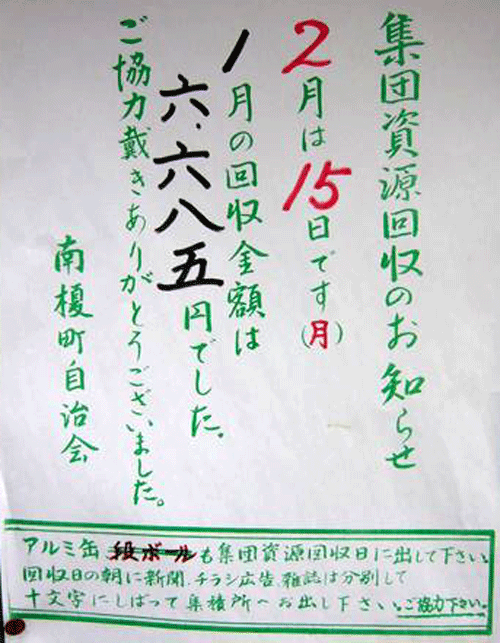 集団資源回収のお知らせ
2月は15日です(月)
1月の回収金額は
六.六八五円でした。
ご協力戴きありがとうございました。
南榎町自治会
アルミ缶 段ボールも集団資源回収日に出して下さい。
回収日の朝に新聞、チラシ広告、雑誌は分別して
十文字にしばって集積所へお出し下さい。ご協力下さい。